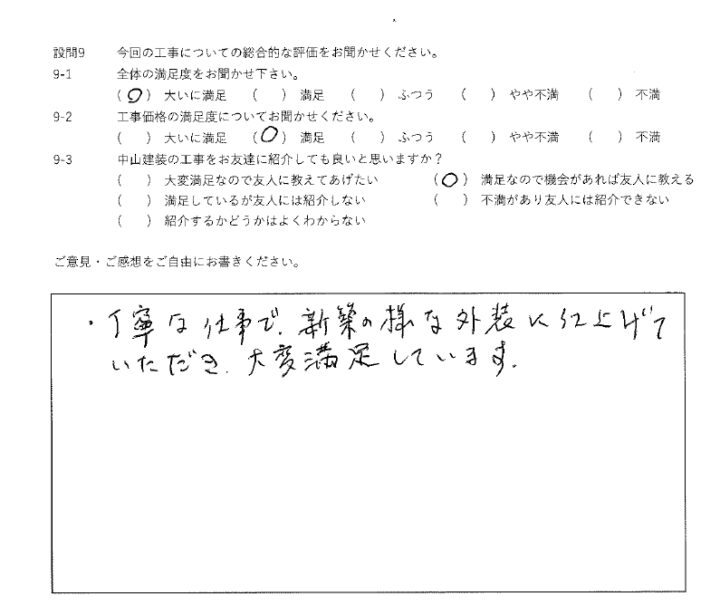 設問9 今回の工事についての総合的な評価をお聞かせください。
9-1 全体の満足度をお聞かせ下さい。
(○) 大いに満足 ( ) 満足 ( ) ふつう ( ) やや不満 ( ) 不満
9-2 工事価格の満足度についてお聞かせください。
( ) 大いに満足 (○) 満足 ( ) ふつう ( ) やや不満 ( ) 不満
9-3 中山建装の工事をお友達に紹介しても良いと思いますか？
( ) 大変満足なので友人に教えてあげたい (○) 満足なので機会があれば友人に教える
( ) 満足しているが友人には紹介しない ( ) 不満があり友人には紹介できない
( ) 紹介するかどうかはよくわからない
ご意見・ご感想をご自由にお書きください。
・丁寧な仕事で、新築の様な外装に仕上げて
いただき、大変満足しています。